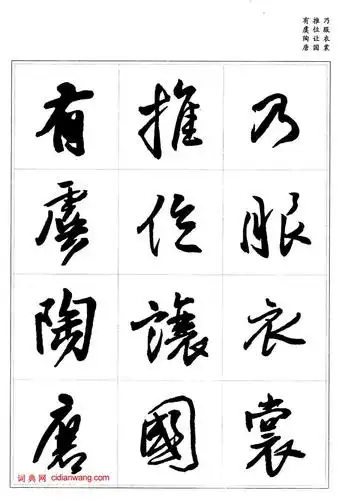 乃服衣裳
推位让国
有虞陶唐
乃服衣裳
推位讓國
有虞陶唐
词典网 cidianwang.com